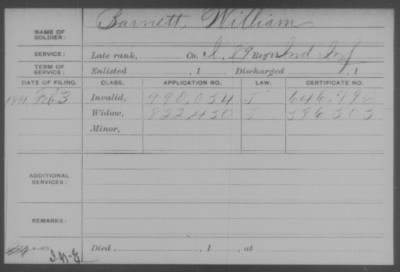 Barnett, William
NAME OF SOLDIER:
SERVICE: Late rank, Co. I, 89 Reg't Ind Inf
TERM OF SERVICE: Enlisted , 1 Discharged , 1
DATE OF FILING. CLASS. APPLICATION NO. LAW. CERTIFICATE NO.
1891 Feb 3 Invalid, 998,054 646,996
Widow, 822,450 596,303
Minor,
ADDITIONAL SERVICES:
REMARKS:
Died , 1 , at